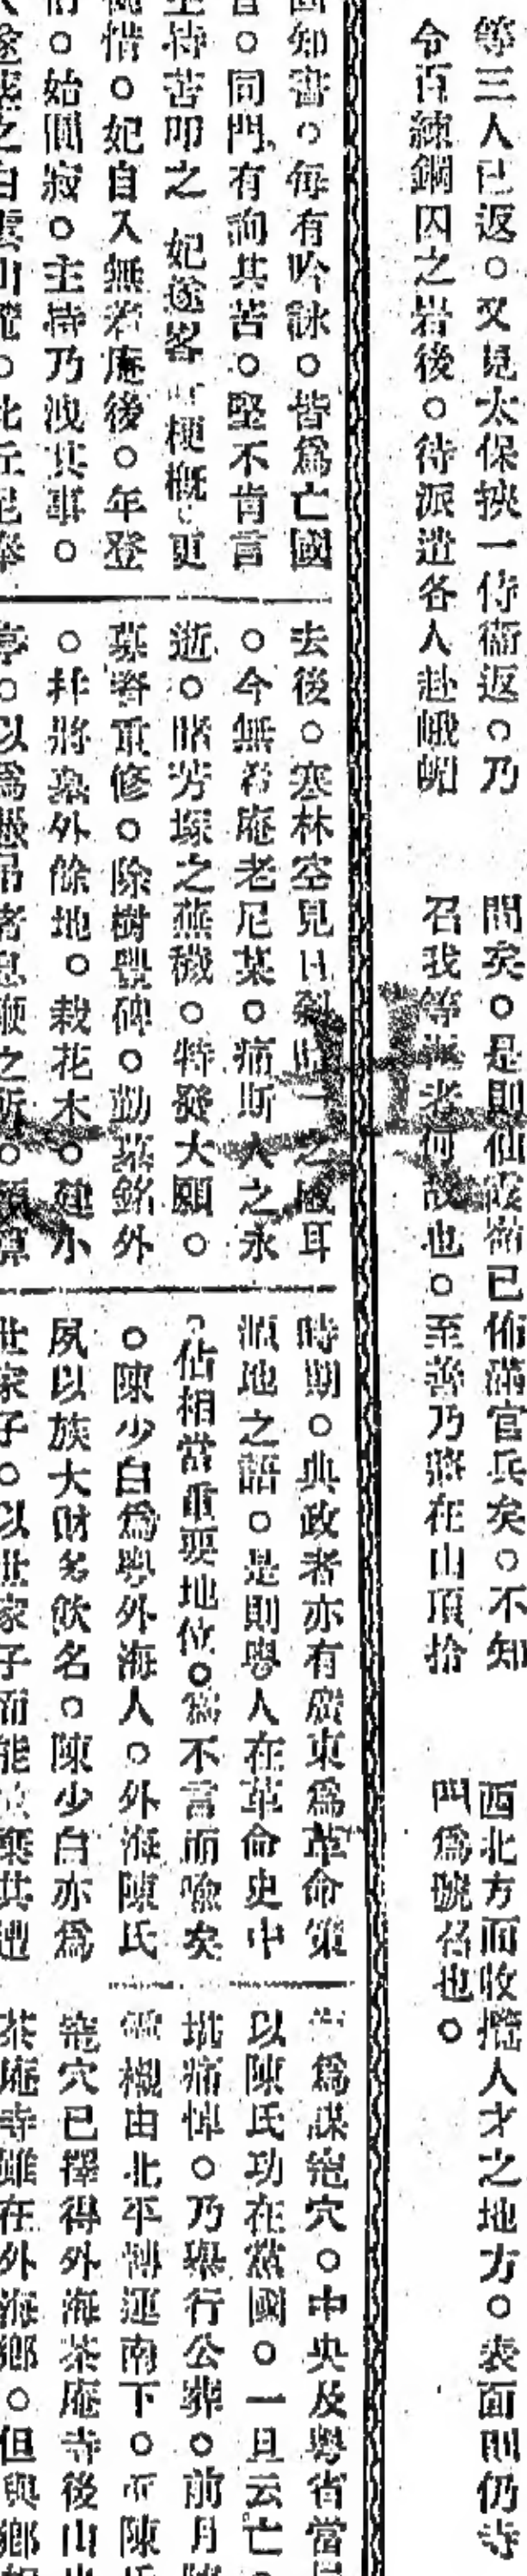 等三人已返。又見太保挾一侍衞返。乃
令百練鋼囚之岩後。待派遣各人赴峨嵋
間矣。是則仙霞嶺已佈滿官兵矣。不知
召我等返者何故也。至善乃將在山頂拾
西北方面收攬人才之地方。表面則仍寺
四爲號召也。
知書。每有吟詠。皆爲亡國
。同門有詢其苦。堅不肯言
持苦叩之 妃遂畧 梗概 更
惜。妃自入無着庵後。年登
。始圓寂。主持乃洩其事。
之白雲山麓。比丘尼舉
去後。寒林空見日 之感耳
。今無着庵老尼某。痛斯人之永
逝。睹芳塚之蕪穢。特發大願。
募脊重修。除樹豐碑。勒墓銘外
。幷將墓外餘地。栽花木。建小
亭。以爲憑吊者息 之所。
時期。典政者亦有廣東爲革命策
源地之語。是則粵人在革命史中
。佔相當重要地位。爲不言而喻矣
。陳少白爲粵外海人。外海陳氏
夙以族大財多飮名。陳少白亦爲
世家子。以世家子而能 棄其
爲謀窀穴。中央及粵省當
以陳氏功在黨國。一旦云亡。
痛悼。乃舉行公葬。前月
靈櫬由北平轉運南下。而陳
窀穴已擇得外海茶庵寺後山
茶庵寺雖在外海鄉。但與鄉